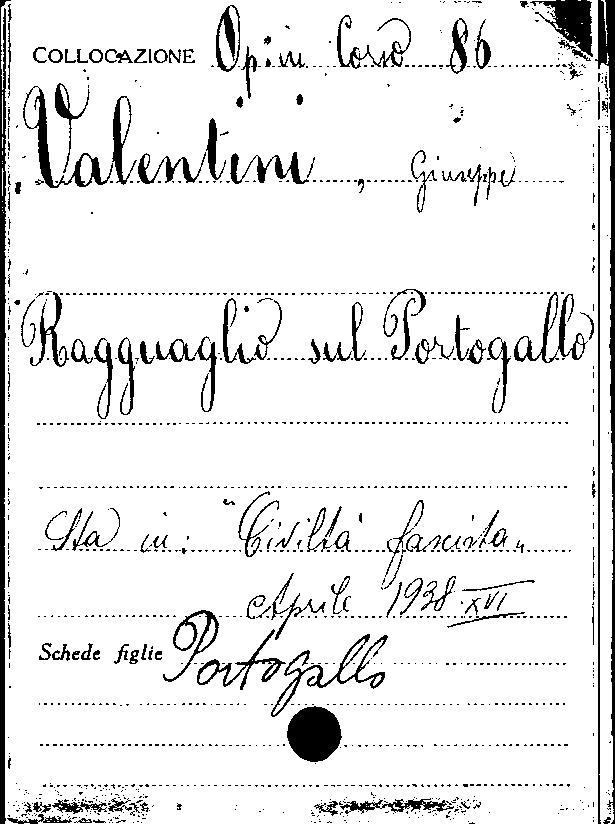 COLLOCAZIONE Op. in Corso 86
Valentini, Giuseppe
Ragguaglio sul Portogallo
Sta in: "Civiltà fascista"
Aprile 1938 XVI
Schede figlie Portogallo